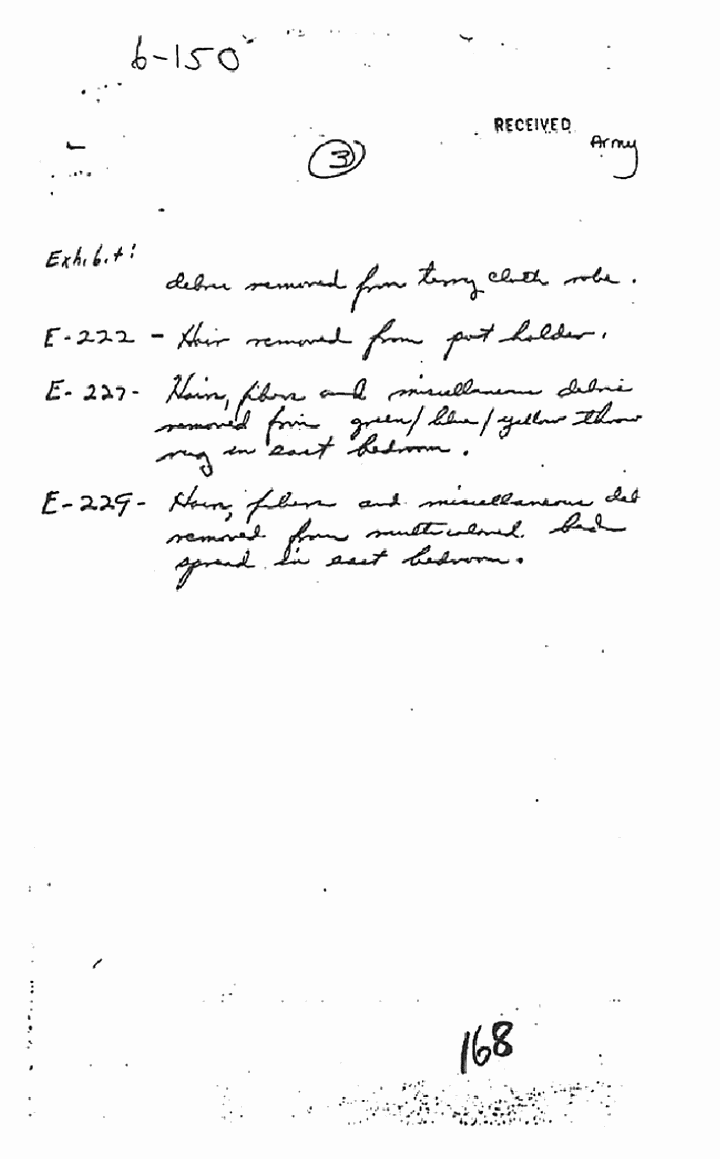 6-150
RECEIVED
Army
3
Exhibit:
debris removed from terry cloth robe.
E-222 - Hair removed from pot holder.
E-227- Hair, fibers and miscellaneous debris
removed from green/blue/yellow throw
rug in east bedroom.
E-229- Hair, fibers and miscellaneous deb
removed from multicolored bed
spread in east bedroom.
168